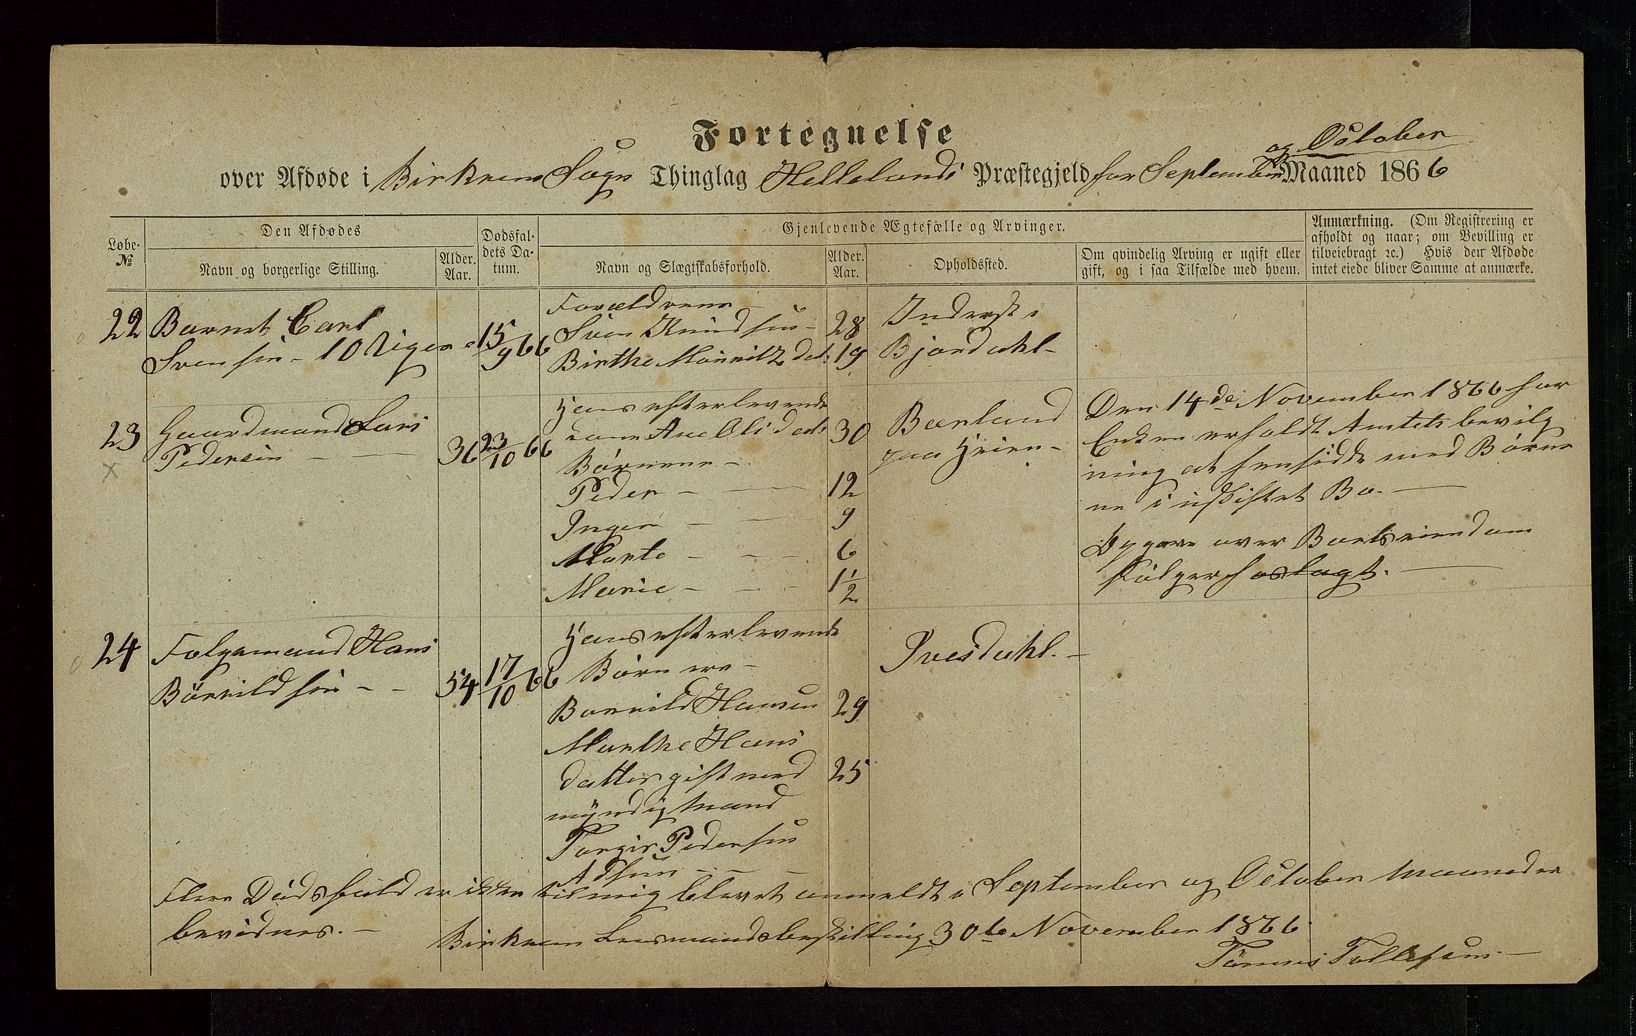 Fortegnelse
over Afdøde i Birkrem Sogn Thinglag Hellelands Præstegjeld for September og October Maaned 1866
Løbe-
№
Den Afdødes
Navn og borgerlige Stilling.
Alder.
Aar.
Dødsfal-
dets Da-
tum.
Gjenlevende Ægtefælle og Arvinger.
Navn og Slægtskabsforhold.
Alder.
Aar.
Opholdssted.
Om qvindelig Arving er ugift eller
gift, og i saa Tilfælde med hvem.
Anmærkning. (Om Registrering er
afholdt og naar; om Bevilling er
tilveiebragt ⁊c.) Hvis den Afdøde
intet eiede bliver Samme at anmærke.
22 Barnet Carl
Svensen - 10 Uger
15/9 66
Forældrene
Sven Knudsen - 28
Birthe Monritzdat. 19
Inderst i
Bjordahl -
23 Gaardmand Lars
Pedersen - - 36 23/10 66
Hans efterlevende
Kone Ane Olsdatt 30
Børnene -
Peder - - 12
Inger - - 9
Marte - - 6
Marie - - 1 1/2
Bærland
paa Heien -
Den 14de November 1866 har
Enken erholdt Amtets bevilg
ning at hensidde med Børne
ne i uskiftet Bo. -
Opgave over Boets eiendom
følger hoslagt. -
24 Følgemand Hans
Børrildsen - - 54 17/10 66
Hans efterlevende
Børn ere -
Borrild Hansen 29
Marthe Hans
datter gift med 25
myndig Mand
Torgir Pedersen
Ivesdahl. -
Flere Dødsfald er ikke til mig blevet anmeldt i September og October Maaneder
bevidnes. -
Birkrem Lensmandsbestilling 30te November 1866
Tønnes Tollefsen -